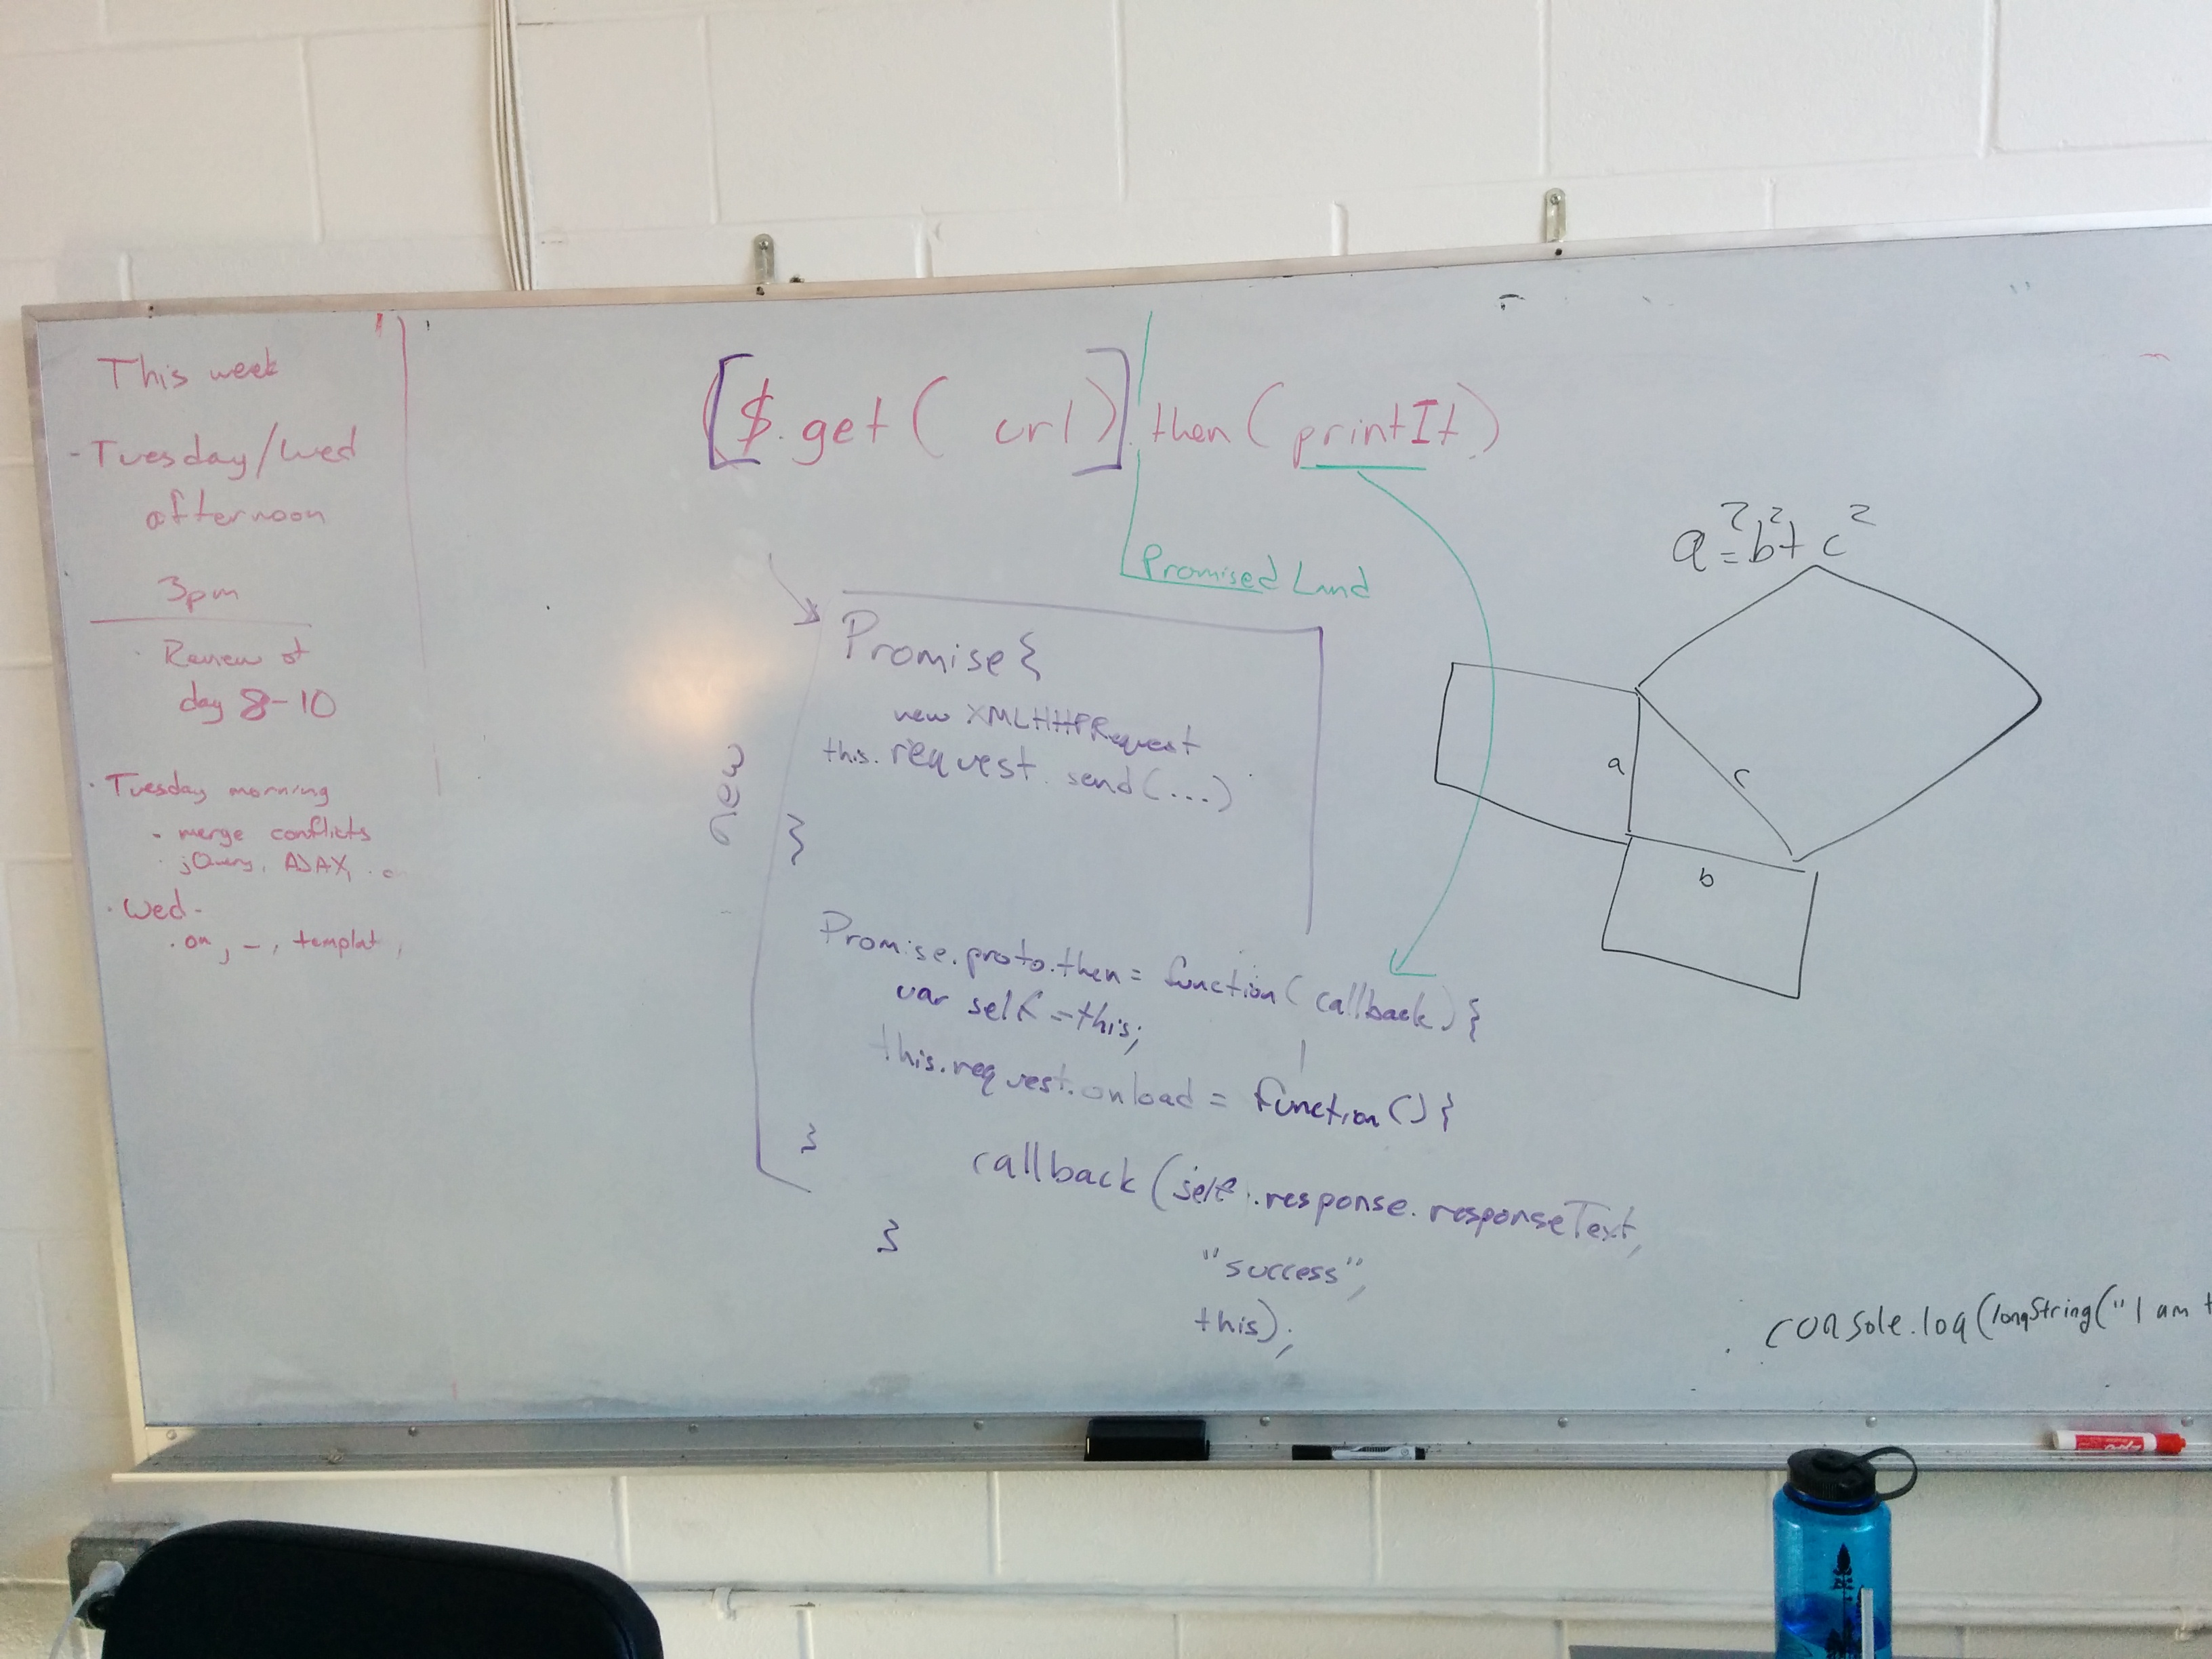 This week
- Tuesday/Wed
afternoon
3pm
· Review of
day 8-10
· Tuesday morning
· merge conflicts
· jQuery, AJAX,
· Wed-
· on, _, templat,
[$.get( url)].then(printIt)
Promised Land
new
Promise{
new XMLHttPRequest
this.request.send(...)
}
Promise.proto.then = function(callback){
var self = this;
this.request.onload = function(){
}
callback(self.response.responseText,
}
"success",
this);
a²=b²+c²
a
c
b
console.log(longString("I am t